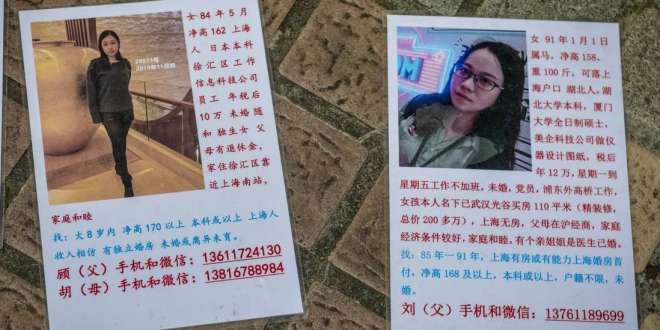 女 84 年 5 月
净高 162 上海
人 日本本科
徐汇区工作
信息科技公司
员工 年税后
10 万 未婚 随
和 独生女 父
母有退休金。
家住徐汇区靠
近上海南站。
家庭和睦
找：大 8 岁内 净高 170 以上 本科或以上 上海人
收入相仿 有独立婚房 未婚或离异未育。
顾（父）手机和微信：13611724130
胡（母）手机和微信：13816788984
女 91 年 1 月 1 日
属马，净高 158，
重 100 斤，可落上
海户口 湖北人，湖
北大学本科，厦门
大学全日制硕士，
美企科技公司做仪
器设计图纸，税后
年 12 万，星期一到
星期五工作不加班，未婚，党员，浦东外高桥工作，
女孩本人名下已武汉光谷买房 110 平米（精装修，
总价 200 多万），上海无房，父母在沪经商，家庭
经济条件较好，家庭和睦，有个亲姐姐是医生已婚，
找：85 年一 91 年，上海有房或有能力上海婚房首
付，净高 168 及以上，本科或以上，户籍不限，未
婚。
刘（父）手机和微信：13761189699